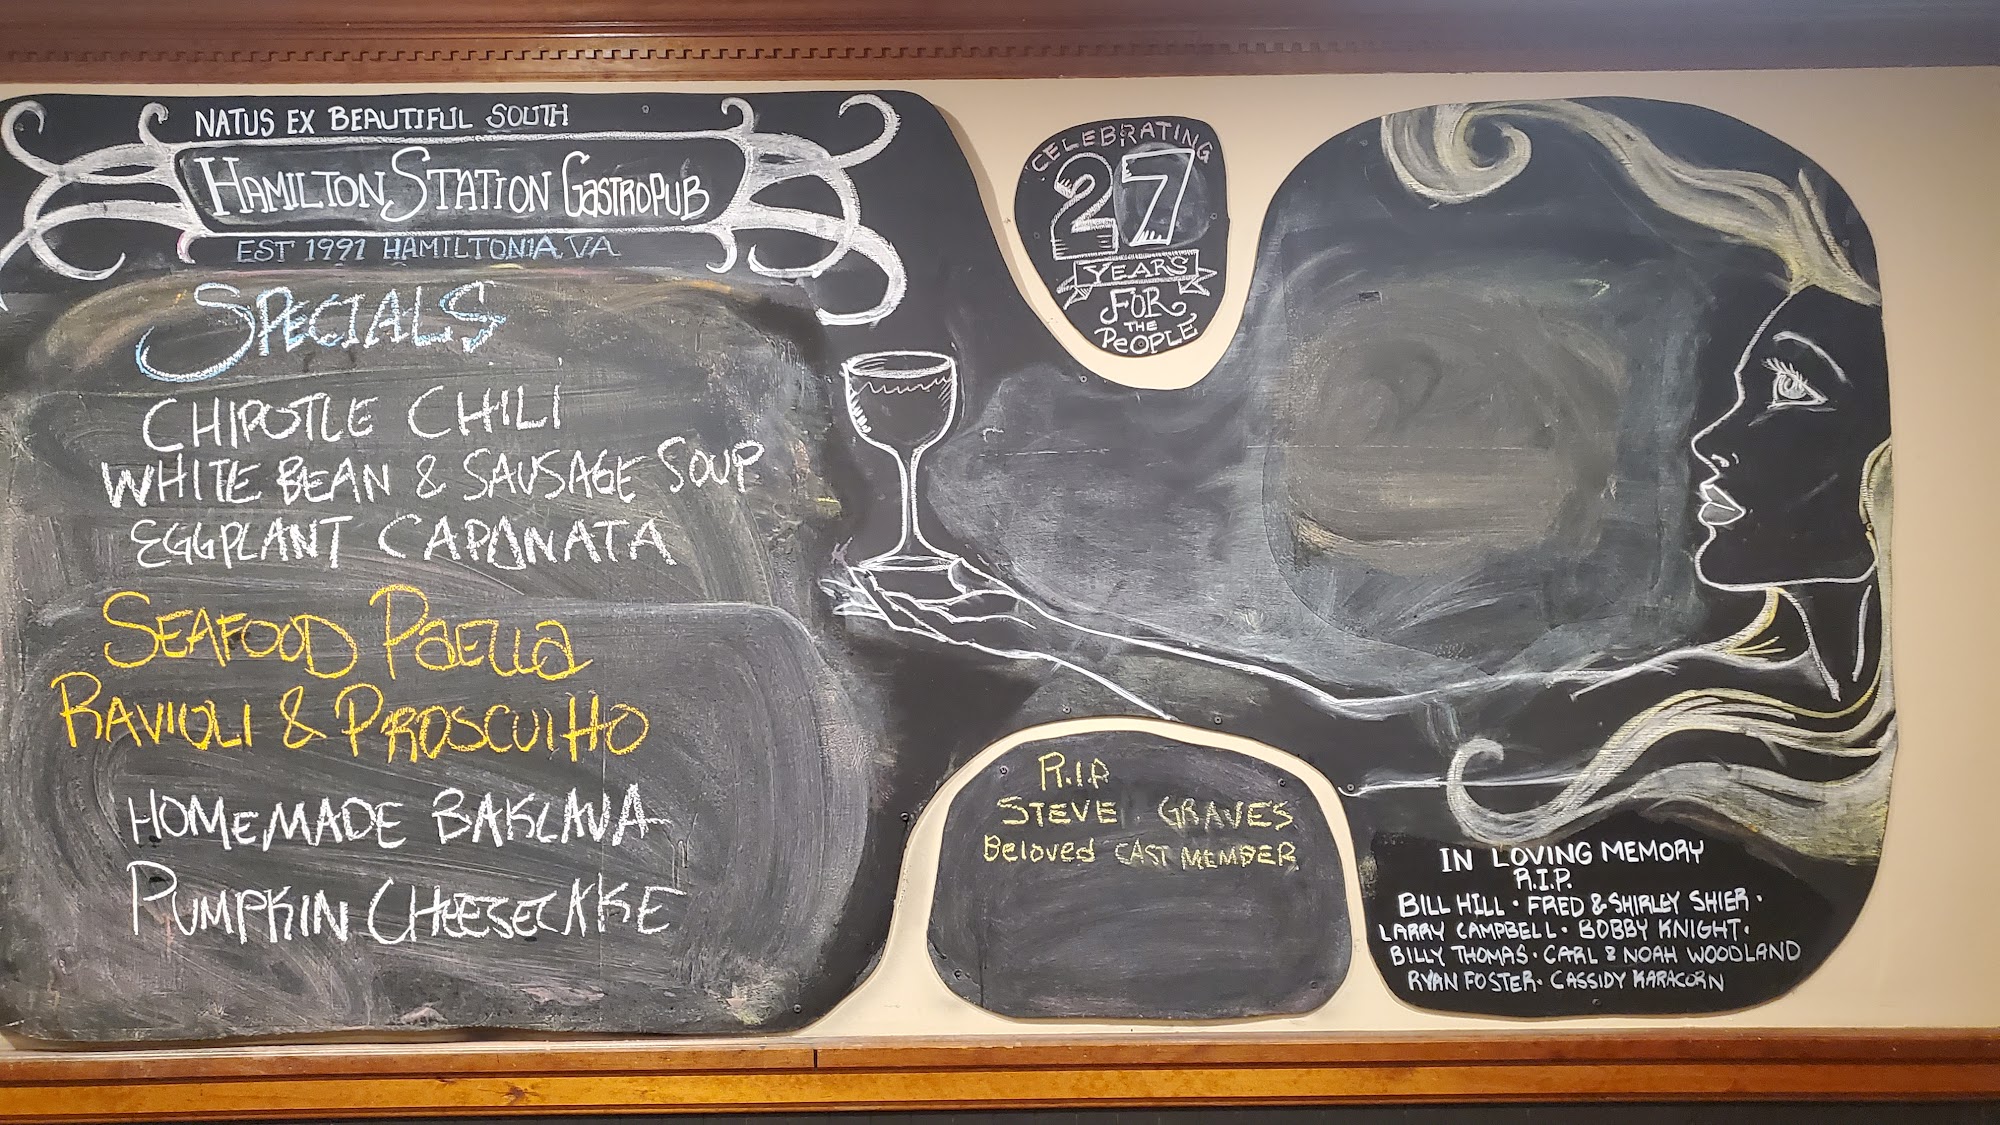 NATUS EX BEAUTIFUL SOUTH
HAMILTON STATION GASTROPUB
EST 1991 HAMILTONIA, VA
SPECIALS
CHIPOTLE CHILI
WHITE BEAN & SAUSAGE SOUP
EGGPLANT CAPONATA
SEAFOOD PAELLA
RAVIOLI & PROSCUITTO
HOMEMADE BAKLAVA
PUMPKIN CHEESECAKE
CELEBRATING
27
YEARS
FOR
THE
PEOPLE
R.I.P
STEVE GRAVES
Beloved CAST MEMBER
IN LOVING MEMORY
R.I.P.
BILL HILL · FRED & SHIRLEY SHIER ·
LARRY CAMPBELL · BOBBY KNIGHT ·
BILLY THOMAS · CARL & NOAH WOODLAND
RYAN FOSTER · CASSIDY KARACORN